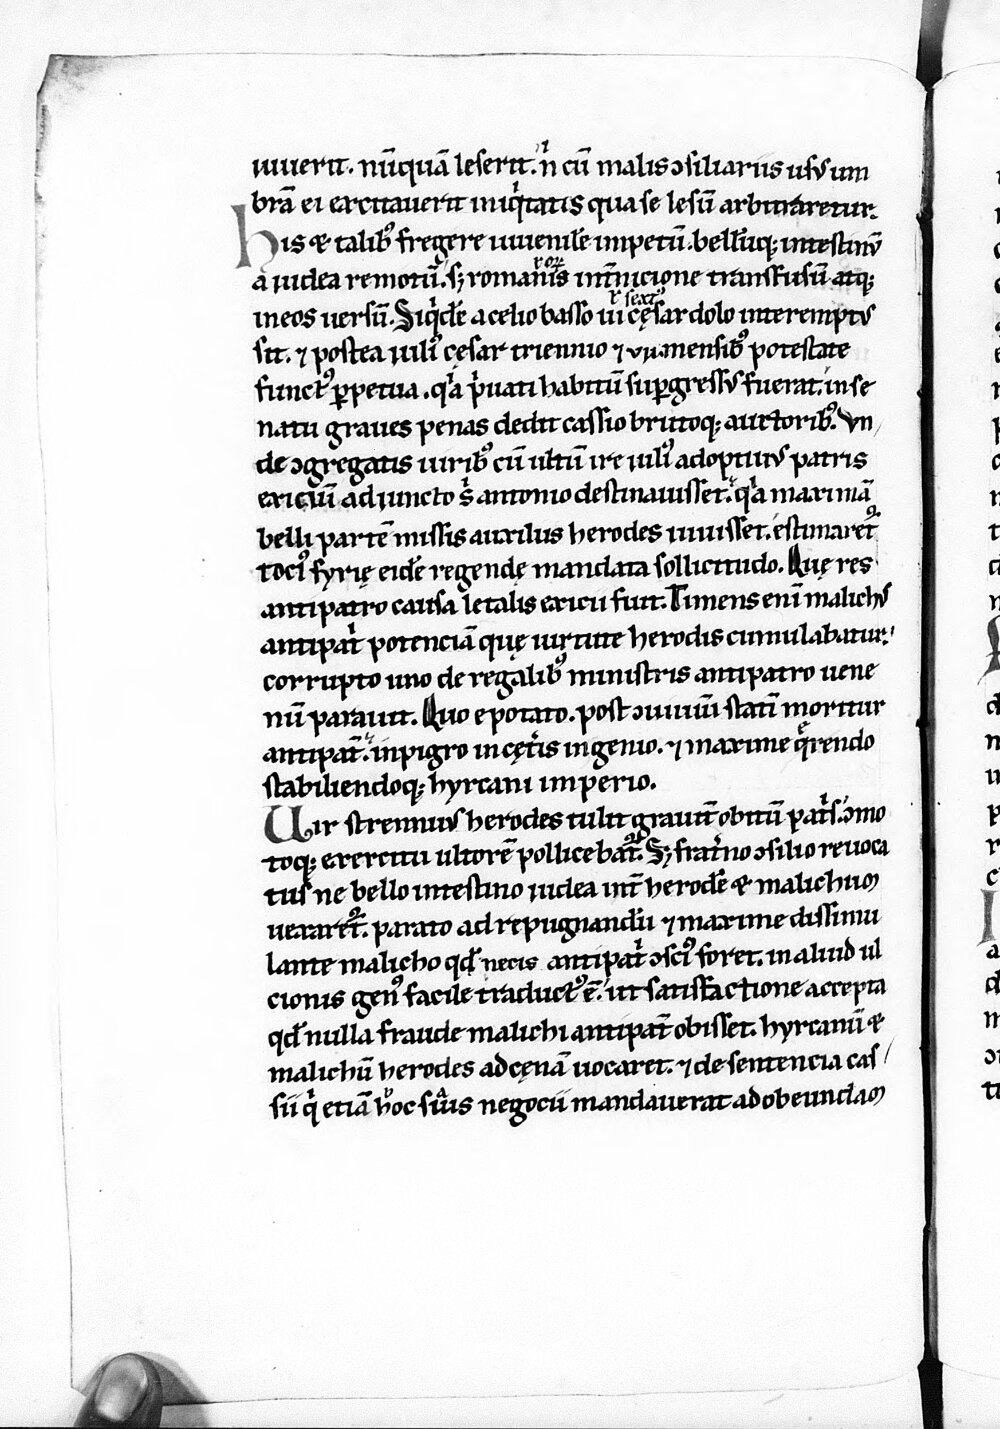 iuuerit. nūquā leserit. n̄ cū malis ɔsiliariis usus um
brā ei excitauerit iniq̇tatis qua se lesū arbitraretur.
his & talib⁹ fregere iuuenile impetū. bellūq; intestinū
a iudea remotū. sꝫ romanis int̄nicione transfusū atq;
in eos uersū. Siq̇dē a celio basso ui cęsar dolo interemptus
sit. ⁊ postea iulī cęsar triennio ⁊ vii. mensib⁹ potestate
funct⁹ ꝑpetua. q̇a ṗuati habitū suꝑgressus fuerat. in se
natu graues penas dedit cassio brutoq; auctorib⁹. Vn
de ɔgregatis uirib⁹ cū ultū ire iulī adoptiuus patris
exiciū adiuncto s̄ antonio destinauisset. q̇a maximā
belli partē missis auxiliis herodes iuuisset. estimaret᷑
toci⁹ syrię eidē regendę mandata sollicitudo. Quę res
antipatro causa letalis exicii fuit. Timens enī malichus
antipat̄ potenciā quę uirtute herodis cumulabatur.
corrupto uno de regalib⁹ ministris antipatro uene
nū parauit. Quo epotato. post ɔuiuiū statī moritur
antipat̄. inpigro in cęt̄is ingenio. ⁊ maxime q̄rendo
stabiliendoq; hyrcani imperio.
Uir strennuus herodes tulit grauit̄ obitū pat̄s. ɔmo
toq; exercitu ultorē pollicebat᷑. Sꝫ frat̄no ɔsilio reuoca
tus ne bello intestino iudea int̄ herodē & malichum
uexaret᷑. parato ad repugnandū ⁊ maxime dissimu
lante malicho qđ necis antipat̄ ɔsci⁹ foret. in aliud ul
cionis gen⁹ facile traduct⁹ ē. ut satisfactione accepta
qđ nulla fraude malichi antipat̄ obisset. hyrcanū &
malichū herodes ad cęnā uocaret. ⁊ de sentencia cas
sii q̇ etiā hoc suis negocii mandauerat ad obeundam